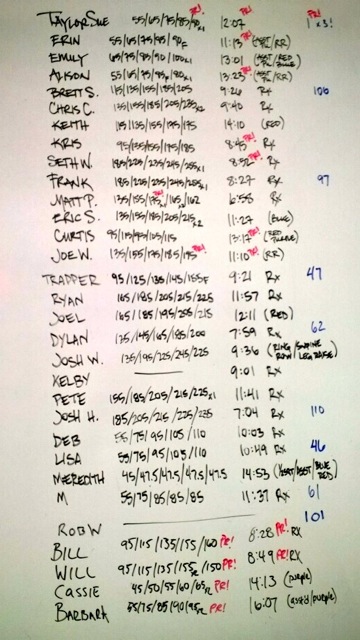 TAYLOR SUE 55/65/75/85/90x1 PR! 12:07 PR! 1 x 3!
ERIN 55/65/75/85/90F 11:13 PR! (ASST/RR)
EMILY 65/75/85/90/100x1 13:01
ALISON 55/65/75/85/80x1 13:23 PR! (ASST/RR)
BRETT S. 115/135/155/185/205 9:26 Rx 106
CHRIS C. 135/155/185/205/235x2 9:40 Rx
KEITH 115/135/155/175/175 14:10 (RED)
KRIS 95/135/155/175/185 8:45 PR! Rx
SETH W. 185/225/235/245/255x1 8:52 PR! Rx
FRANK 185/225/235/245/255x1 8:27 Rx 97
MATT P. 135/155/ PR! /165/162 6:58 Rx
ERIC S. 135/155/185/205/215x2 11:27 (BLUE)
CURTIS 95/115/95/105/115 13:17 PR!
JOE W. 135/155/175/185/195 PR! 11:10 PR! (RR)
TRAPPER 95/125/135/145/155F 9:21 Rx 47
RYAN 165/185/205/215/225 11:57 Rx
JOEL 165/185/195/205/215 12:11 (RED)
DYLAN 135/145/165/185/200 7:59 Rx 62
JOSH W. 135/195/225/245/225 9:36 (RING ROW/ LEG RAISE)
KELBY 9:01 Rx
PETE 155/185/205/215/225x1 11:41 Rx
JOSH H. 185/205/215/225/235 7:04 Rx 110
DEB 55/75/95/105/110 10:03 Rx
LISA 55/75/95/105/110 10:49 Rx 46
MEREDITH 45/47.5/47.5/47.5/47.5 14:53 (ASST/ASST/BLUE RED)
M 55/75/85/85/85 11:37 Rx 61
ROB W 8:28 PR! RX 101
BILL 95/115/135/155/160 PR! 8:49 PR! RX
WILL 95/115/135/155/150 PR!
CASSIE 45/50/55/60/65 PR! 14:13 (purple)
BARBARA 55/75/85/90/95 PR! 16:07 (asst'd/purple)